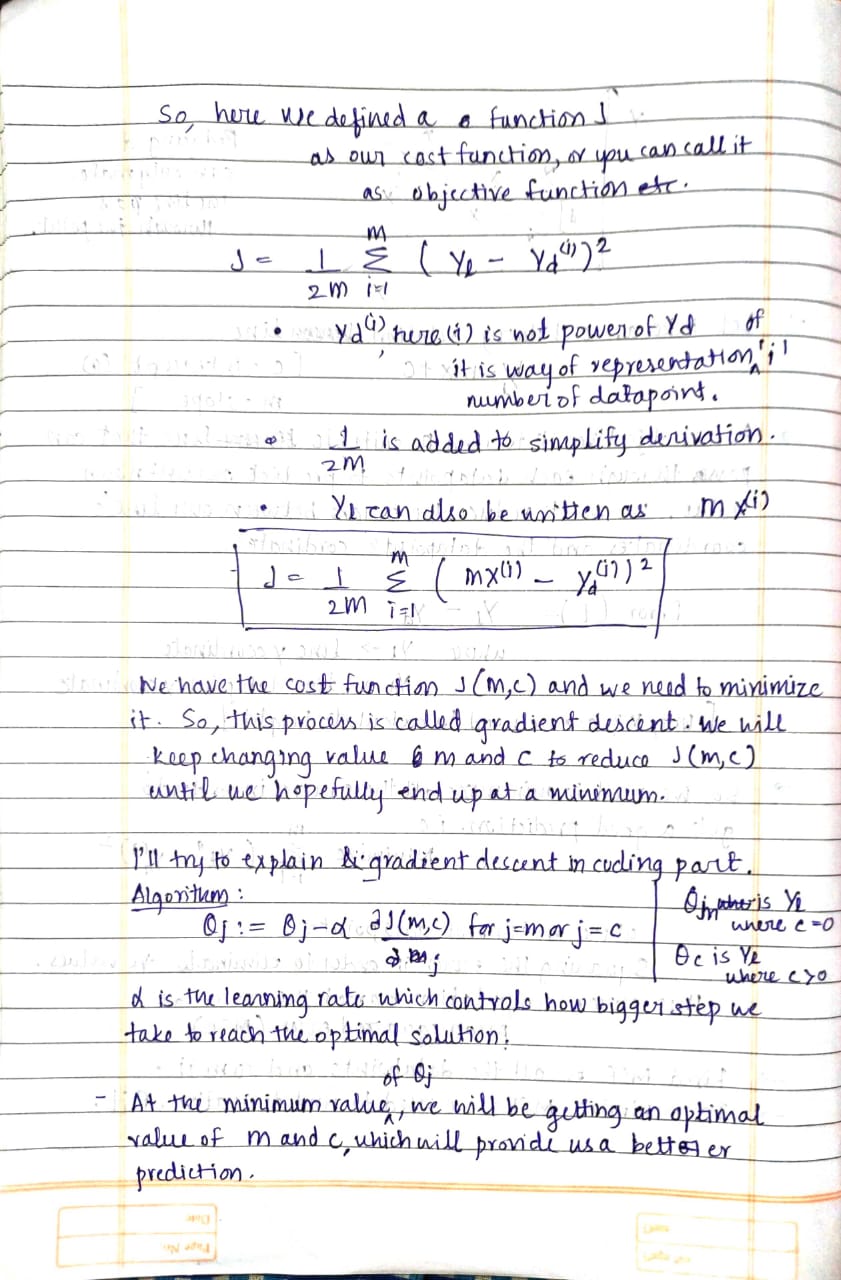 So, here we defined a function J
as our cost function, or you can call it
as objective function etc.
J = 1/2m Σ_{i=1}^{m} (Yl - Yd^(i))^2
• Yd^(i), here (i) is not power of Yd
it is way of representation of 'i'
number of datapoint.
• 1/2m is added to simplify derivation.
• Yl can also be written as mx^(i)
J = 1/2m Σ_{i=1}^{m} (mx^(i) - Yd^(i))^2
We have the cost function J(m,c) and we need to minimize
it. So, this process is called gradient descent. We will
keep changing value m and c to reduce J(m,c)
until we hopefully end up at a minimum.
I'll try to explain gradient descent in coding part.
Algoritum:
θj := θj - α ∂J(m,c)/∂mj for j=m or j=c
θm is Yl
where c=0
θc is Yl
where c>0
α is the learning rate which controls how bigger step we
take to reach the optimal solution.
- At the minimum value of θj, we will be getting an optimal
value of m and c, which will provide us a better
prediction.
Date
Page No.